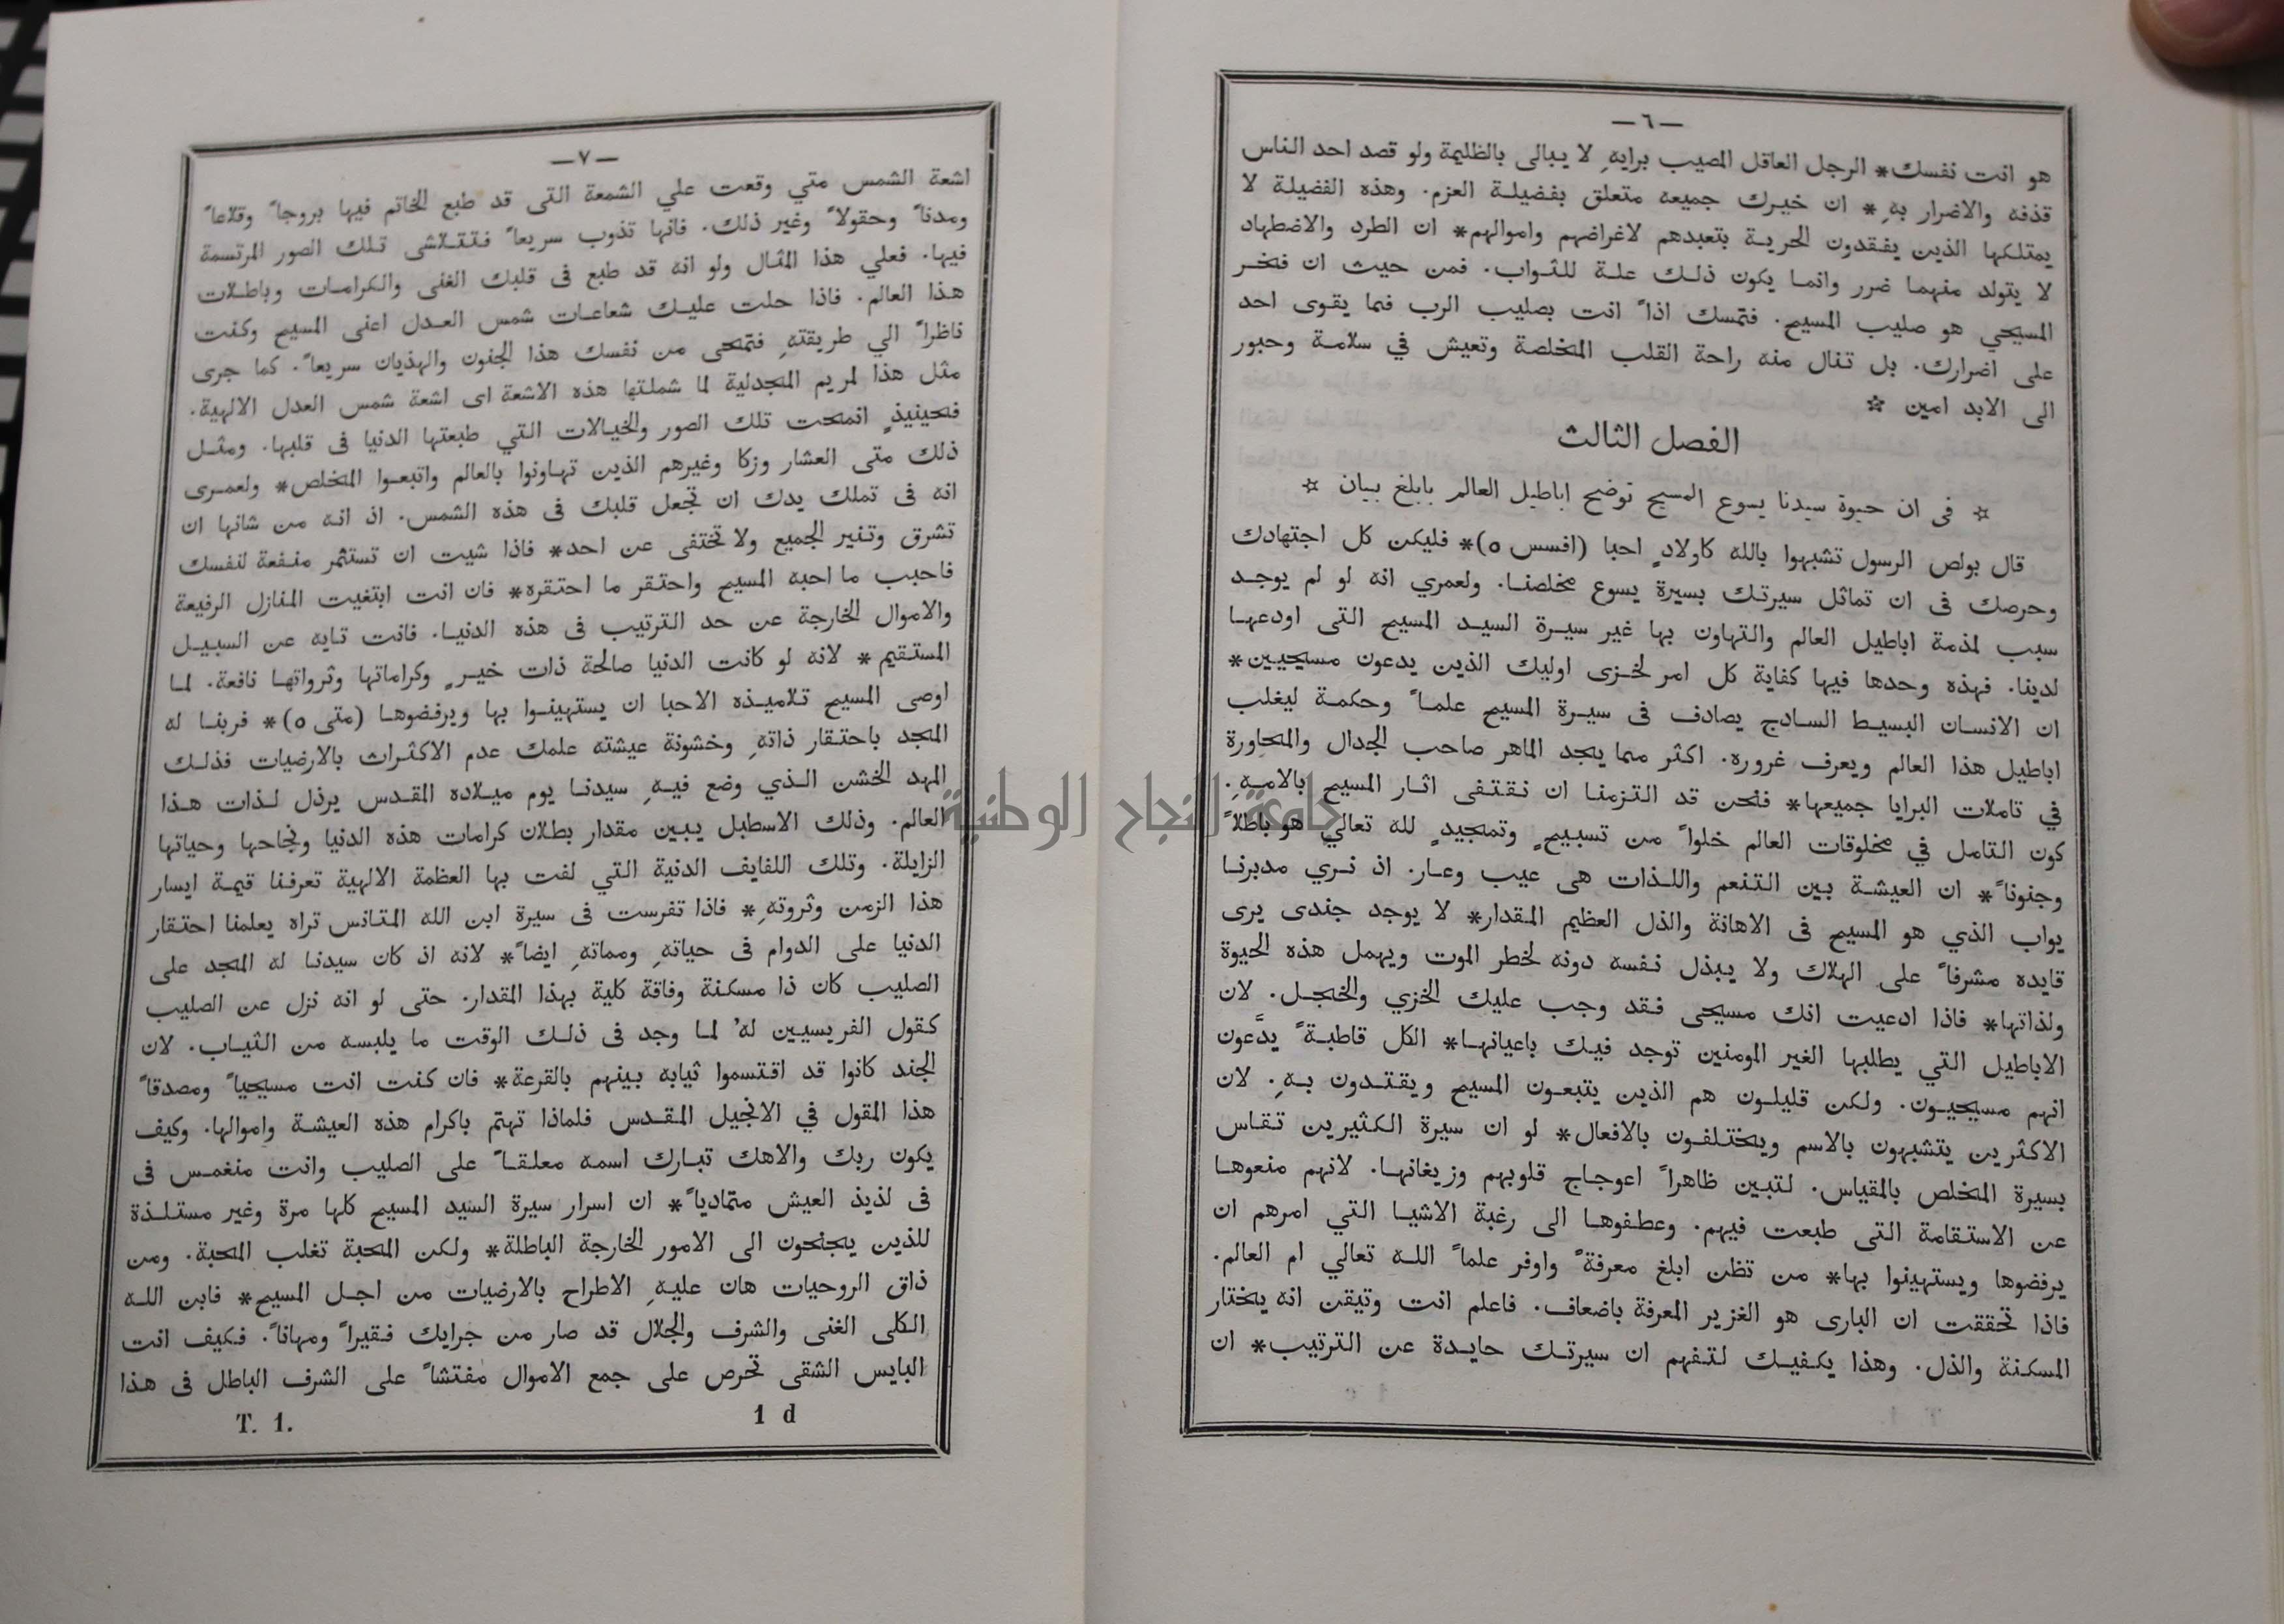 —٦—
هو انت نفسك* الرجل العاقل المصيب برايهِ لا يبالى بالظليمة ولو قصد احد الناس
قذفه والاضرار بهِ* ان خيرك جميعه متعلق بفضيلة العزم. وهذه الفضيلة لا
يمتلكها الذين يفقدون الحرية بتعبدهم لاغراضهم واموالهم* ان الطرد والاضطهاد
لا يتولد منهما ضرر وانما يكون ذلك علة للثواب. فمن حيث ان فخر
المسيحي هو صليب المسيح. فتمسك اذاً انت بصليب الرب فما يقوى احد
على اضرارك. بل تنال منه راحة القلب المخلصة وتعيش في سلامة وحبور
الى الابد امين ☆
الفصل الثالث
☆ فى ان حيوة سيدنا يسوع المسيح توضح اباطيل العالم بابلغ بيان ☆
قال بولص الرسول تشبهوا بالله كاولادٍ احبا (افسس ٥)* فليكن كل اجتهادك
وحرصك فى ان تماثل سيرتك بسيرة يسوع مخلصنا. ولعمري انه لو لم يوجد
سبب لمذمة اباطيل العالم والتهاون بها غير سيرة السيد المسيح التى اودعها
لدينا. فهذه وحدها فيها كفاية كل امر لخزى اوليك الذين يدعون مسيحيين*
ان الانسان البسيط السادج يصادف فى سيرة المسيح علماً وحكمة ليغلب
اباطيل هذا العالم ويعرف غروره. اكثر مما يجد الماهر صاحب الجدال والمحاورة
في تاملات البرايا جميعها* فنحن قد التزمنا ان نقتفى اثار المسيح بالامهِ.
كون التامل في مخلوقات العالم خلواً من تسبيحٍ وتمجيدٍ لله تعالي هو باطلاً
وجنوناً* ان العيشة بين التنعم واللذات هى عيب وعار. اذ نري مدبرنا
يواب الذي هو المسيح فى الاهانة والذل العظيم المقدار* لا يوجد جندى يرى
قايده مشرفاً على الهلاك ولا يبذل نفسه دونه لخطر الموت ويهمل هذه الحيوة
ولذاتها* فاذا ادعيت انك مسيحى فقد وجب عليك الخزي والخجل. لان
الاباطيل التي يطلبها الغير المومنين توجد فيك باعيانها* الكل قاطبةً يدَّعون
انهم مسيحيون. ولكن قليلون هم الذين يتبعون المسيح ويقتدون بهِ. لان
الاكثرين يتشبهون بالاسم ويختلفون بالافعال* لو ان سيرة الكثيرين تقاس
بسيرة المخلص بالمقياس. لتبين ظاهراً اعوجاج قلوبهم وزيغانها. لانهم منعوها
عن الاستقامة التى طبعت فيهم. وعطفوها الى رغبة الاشيا التي امرهم ان
يرفضوها ويستهينوا بها* من تظن ابلغ معرفةً واوفر علماً الله تعالي ام العالم.
فاذا تحققت ان البارى هو الغزير المعرفة باضعاف. فاعلم انت وتيقن انه يختار
المسكنة والذل. وهذا يكفيك لتفهم ان سيرتك حايدة عن الترتيب* ان
—٧—
اشعة الشمس متي وقعت علي الشمعة التى قد طبع الخاتم فيها بروجاً وقلاعاً
ومدناً وحقولاً وغير ذلك. فانها تذوب سريعاً فتتلاشى تلك الصور المرتسمة
فيها. فعلي هذا المثال ولو انه قد طبع فى قلبك الغنى والكرامات وباطلات
هذا العالم. فاذا حلت عليك شعاعات شمس العدل اعنى المسيح وكنت
ناظراً الي طريقتهِ فتمحى من نفسك هذا الجنون والهذيان سريعاً. كما جرى
مثل هذا لمريم المجدلية لما شملتها هذه الاشعة اى اشعة شمس العدل الالهية.
فحينيذٍ انمحت تلك الصور والخيالات التي طبعتها الدنيا فى قلبها. ومثل
ذلك متى العشار وزكا وغيرهم الذين تهاونوا بالعالم واتبعوا المخلص* ولعمرى
انه فى تملك يدك ان تجعل قلبك فى هذه الشمس. اذ انه من شانها ان
تشرق وتنير الجميع ولا تختفى عن احد* فاذا شيت ان تستثمر منفعة لنفسك
فاحبب ما احبه المسيح واحتقر ما احتقره* فان انت ابتغيت المنازل الرفيعة
والاموال الخارجة عن حد الترتيب فى هذه الدنيا. فانت تايه عن السبيل
المستقيم* لانه لو كانت الدنيا صالحة ذات خيرٍ وكراماتها وثرواتها نافعة. لما
اوصى المسيح تلاميذه الاحبا ان يستهينوا بها ويرفضوها (متى ٥)* فربنا له
المجد باحتقار ذاتهِ وخشونة عيشته علمك عدم الاكثراث بالارضيات فذلك
المهد الخشن الذي وضع فيهِ سيدنا يوم ميلاده المقدس يرذل لذات هذا
العالم. وذلك الاسطبل يبين مقدار بطلان كرامات هذه الدنيا ونجاحها وحياتها
الزايلة. وتلك اللفايف الدنية التي لفت بها العظمة الالهية تعرفنا قيمة ايسار
هذا الزمن وثروتهِ* فاذا تفرست فى سيرة ابن الله المتانس تراه يعلمنا احتقار
الدنيا على الدوام فى حياتهِ ومماتهِ ايضاً* لانه اذ كان سيدنا له المجد على
الصليب كان ذا مسكنة وفاقة كلية بهذا المقدار. حتى لو انه نزل عن الصليب
كقول الفريسيين لهُ لما وجد فى ذلك الوقت ما يلبسه من الثياب. لان
الجند كانوا قد اقتسموا ثيابه بينهم بالقرعة* فان كنت انت مسيحياً ومصدقاً
هذا المقول في الانجيل المقدس فلماذا تهتم باكرام هذه العيشة واموالها. وكيف
يكون ربك والاهك تبارك اسمه معلقاً على الصليب وانت منغمس فى
فى لذيذ العيش متمادياً* ان اسرار سيرة السيد المسيح كلها مرة وغير مستلذة
للذين يجنحون الى الامور الخارجة الباطلة* ولكن المحبة تغلب المحبة. ومن
ذاق الروحيات هان عليهِ الاطراح بالارضيات من اجل المسيح* فابن الله
الكلى الغنى والشرف والجلال قد صار من جرايك فقيراً ومهاناً. فكيف انت
البايس الشقى تحرص على جمع الاموال مفتشاً على الشرف الباطل فى هذا
T. 1. 1 d
جامعة النجاح الوطنية